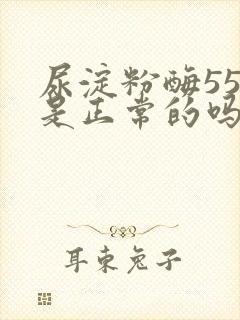 尿淀粉酶55
是正常的吗
耳东兔子